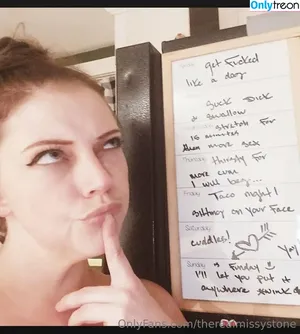 Onlytreon
get Fucked
like a dog
Suck Dick
& swallow
stretch for
15 minutes
then more sex
Thursday thirsty for
more cum
I will beg...
Friday Taco night!
sitting on your Face
Saturday
cuddles!
Yay
Sunday Funday
I'll let you put it
anywhere *wink
OnlyFans.com/therealmissystone